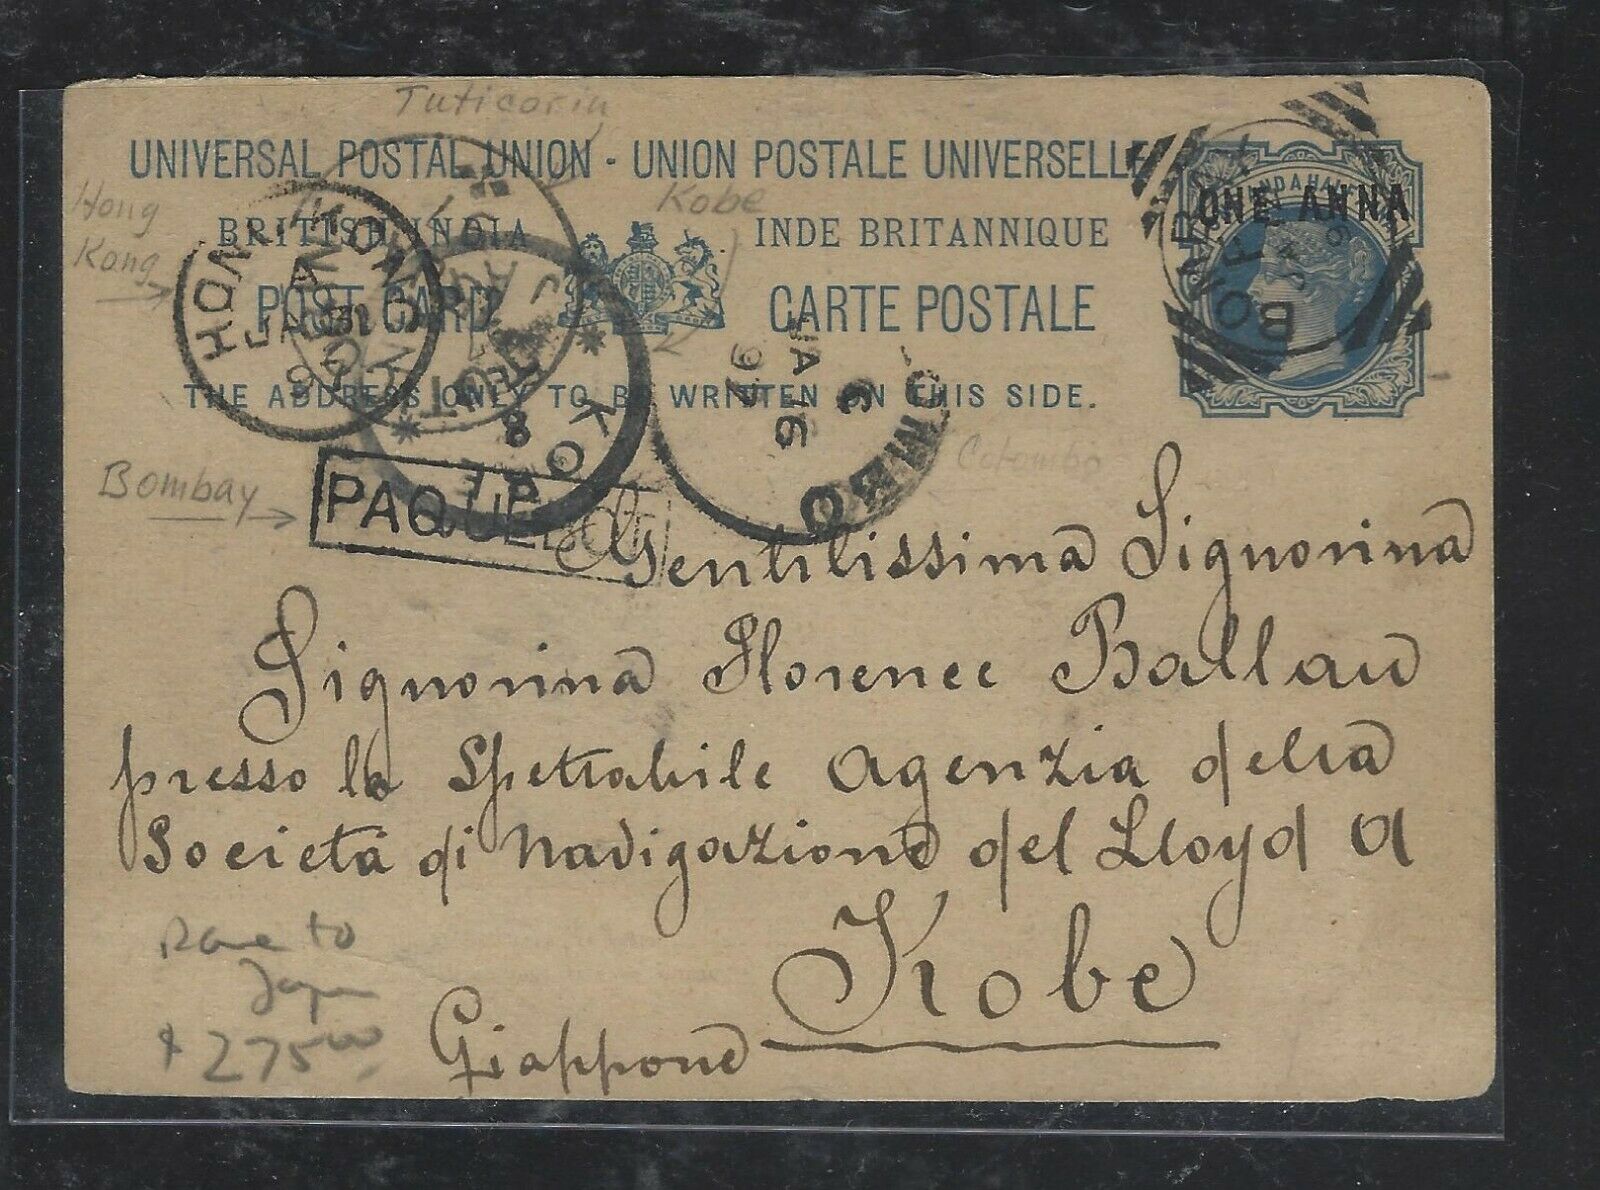 Tuticorin
UNIVERSAL POSTAL UNION - UNION POSTALE UNIVERSELLE
Hong Kong
Kobe
BRITISH INDIA
INDE BRITANNIQUE
ONE ANNA
POST CARD
CARTE POSTALE
THE ADDRESS ONLY TO BE WRITTEN ON THIS SIDE.
HONG KONG
KOBE
JA 16
Colombo
Bombay
PAQUEBOT
Gentilissima Signorina
Signorina Florence Ballau
presso la Spettabile Agenzia della
Società di Navigazione del Lloyd a
Kobe
Giappone
Rare to
Japan
$275.00